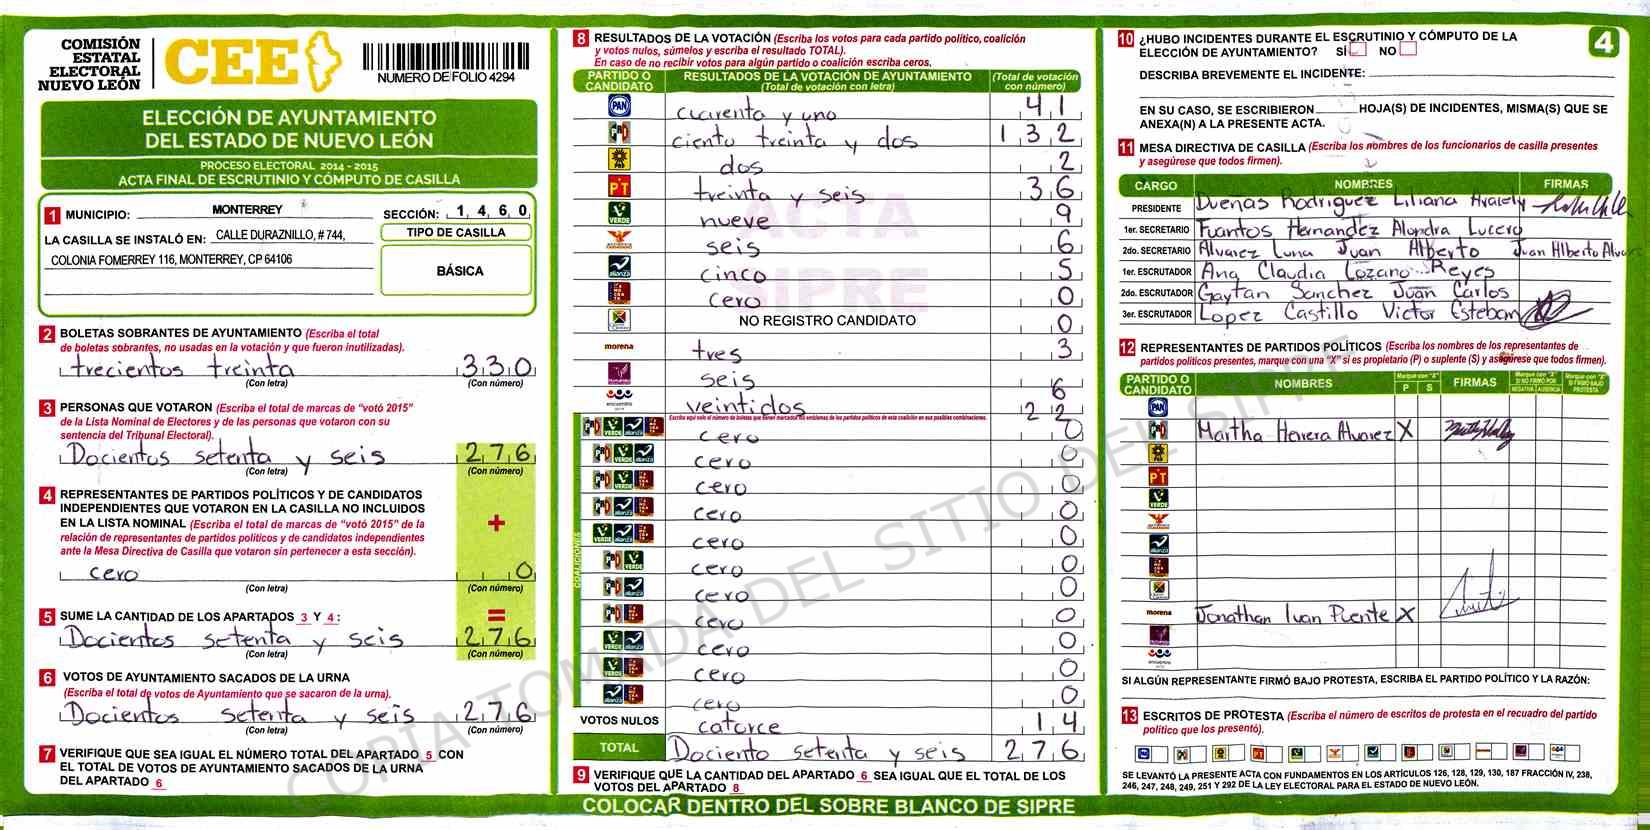 COMISIÓN
ESTATAL
ELECTORAL
NUEVO LEÓN
CEE
NUMERO DE FOLIO 4294
ELECCIÓN DE AYUNTAMIENTO
DEL ESTADO DE NUEVO LEÓN
PROCESO ELECTORAL 2014 - 2015
ACTA FINAL DE ESCRUTINIO Y CÓMPUTO DE CASILLA
1 MUNICIPIO: MONTERREY SECCIÓN: 1 4 6 0
LA CASILLA SE INSTALÓ EN: CALLE DURAZNILLO, # 744,
COLONIA FOMERREY 116, MONTERREY, CP 64106
TIPO DE CASILLA
BÁSICA
2 BOLETAS SOBRANTES DE AYUNTAMIENTO (Escriba el total
de boletas sobrantes, no usadas en la votación y que fueron inutilizadas).
trecientos treinta 330
(Con letra) (Con número)
3 PERSONAS QUE VOTARON (Escriba el total de marcas de "votó 2015"
de la Lista Nominal de Electores y de las personas que votaron con su
sentencia del Tribunal Electoral).
Docientos setenta y seis 276
(Con letra) (Con número)
4 REPRESENTANTES DE PARTIDOS POLÍTICOS Y DE CANDIDATOS
INDEPENDIENTES QUE VOTARON EN LA CASILLA NO INCLUIDOS
EN LA LISTA NOMINAL (Escriba el total de marcas de "votó 2015" de la
relación de representantes de partidos políticos y de candidatos independientes
ante la Mesa Directiva de Casilla que votaron sin pertenecer a esta sección).
+
cero 0
(Con letra) (Con número)
5 SUME LA CANTIDAD DE LOS APARTADOS 3 Y 4: =
Docientos setenta y seis 276
(Con letra) (Con número)
6 VOTOS DE AYUNTAMIENTO SACADOS DE LA URNA
(Escriba el total de votos de Ayuntamiento que se sacaron de la urna).
Docientos setenta y seis 276
(Con letra) (Con número)
7 VERIFIQUE QUE SEA IGUAL EL NÚMERO TOTAL DEL APARTADO 5 CON
EL TOTAL DE VOTOS DE AYUNTAMIENTO SACADOS DE LA URNA
DEL APARTADO 6
8 RESULTADOS DE LA VOTACIÓN (Escriba los votos para cada partido político, coalición
y votos nulos, súmelos y escriba el resultado TOTAL).
En caso de no recibir votos para algún partido o coalición escriba ceros.
PARTIDO O CANDIDATO RESULTADOS DE LA VOTACIÓN DE AYUNTAMIENTO (Total de votación con letra) (Total de votación con número)
PAN cuarenta y uno 41
PRD ciento treinta y dos 132
PRD dos 2
PT treinta y seis 36
VERDE nueve 9
seis 6
alianza cinco 5
cero 0
NO REGISTRO CANDIDATO 0
morena tres 3
seis 6
encuentro veintidos 22
Escriba aquí solo el número de boletas que tienen marcados los emblemas de los partidos políticos de esta coalición en sus posibles combinaciones.
COALICIONES
cero 0
cero 0
cero 0
cero 0
cero 0
cero 0
cero 0
cero 0
cero 0
cero 0
cero 0
VOTOS NULOS catorce 14
TOTAL Dociento setenta y seis 276
9 VERIFIQUE QUE LA CANTIDAD DEL APARTADO 6 SEA IGUAL QUE EL TOTAL DE LOS
VOTOS DEL APARTADO 8
COLOCAR DENTRO DEL SOBRE BLANCO DE SIPRE
ACTA
SIPRE
COPIA TOMADA DEL SITIO DEL SIPRE
10 ¿HUBO INCIDENTES DURANTE EL ESCRUTINIO Y CÓMPUTO DE LA
ELECCIÓN DE AYUNTAMIENTO? SÍ NO
4
DESCRIBA BREVEMENTE EL INCIDENTE:
EN SU CASO, SE ESCRIBIERON HOJA(S) DE INCIDENTES, MISMA(S) QUE SE
ANEXA(N) A LA PRESENTE ACTA.
11 MESA DIRECTIVA DE CASILLA (Escriba los nombres de los funcionarios de casilla presentes
y asegúrese que todos firmen).
CARGO NOMBRES FIRMAS
PRESIDENTE Duenas Rodriguez Liliana Aracely
1er. SECRETARIO Fuantos Hernandez Alondra Lucero
2do. SECRETARIO Alvarez Luna Juan Alberto Juan Alberto Alvarez
1er. ESCRUTADOR Ana Claudia Lozano Reyes
2do. ESCRUTADOR Gaytan Sanchez Juan Carlos
3er. ESCRUTADOR Lopez Castillo Victor Esteban
12 REPRESENTANTES DE PARTIDOS POLÍTICOS (Escriba los nombres de los representantes de
partidos políticos presentes, marque con una "X" si es propietario (P) o suplente (S) y asegúrese que todos firmen).
PARTIDO O CANDIDATO NOMBRES Marque con "X" P S FIRMAS Marque con "X" SI NO FIRMÓ POR NEGATIVA AUSENCIA Marque con "X" SI FIRMÓ BAJO PROTESTA
PAN
Martha Herrera Alvarez X
PRD
PT
VERDE
alianza
morena Jonathan Ivan Puente X
encuentro
SI ALGÚN REPRESENTANTE FIRMÓ BAJO PROTESTA, ESCRIBA EL PARTIDO POLÍTICO Y LA RAZÓN:
13 ESCRITOS DE PROTESTA (Escriba el número de escritos de protesta en el recuadro del partido
político que los presentó).
SE LEVANTÓ LA PRESENTE ACTA CON FUNDAMENTOS EN LOS ARTÍCULOS 126, 128, 129, 130, 187 FRACCIÓN IV, 238,
246, 247, 248, 249, 251 Y 292 DE LA LEY ELECTORAL PARA EL ESTADO DE NUEVO LEÓN.